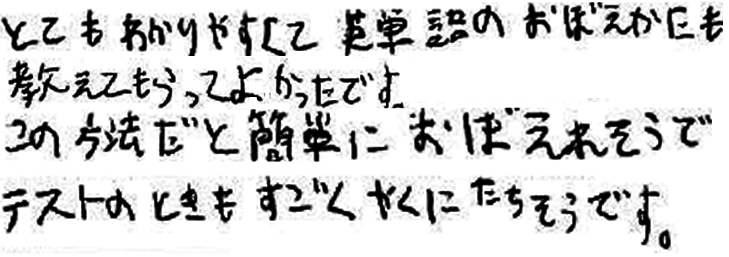 とてもわかりやすくて 英単語の おぼえかたも
教えてもらってよかったです。
この方法だと簡単に おぼえれそうで
テストのときも すごく やくに たちそうです。